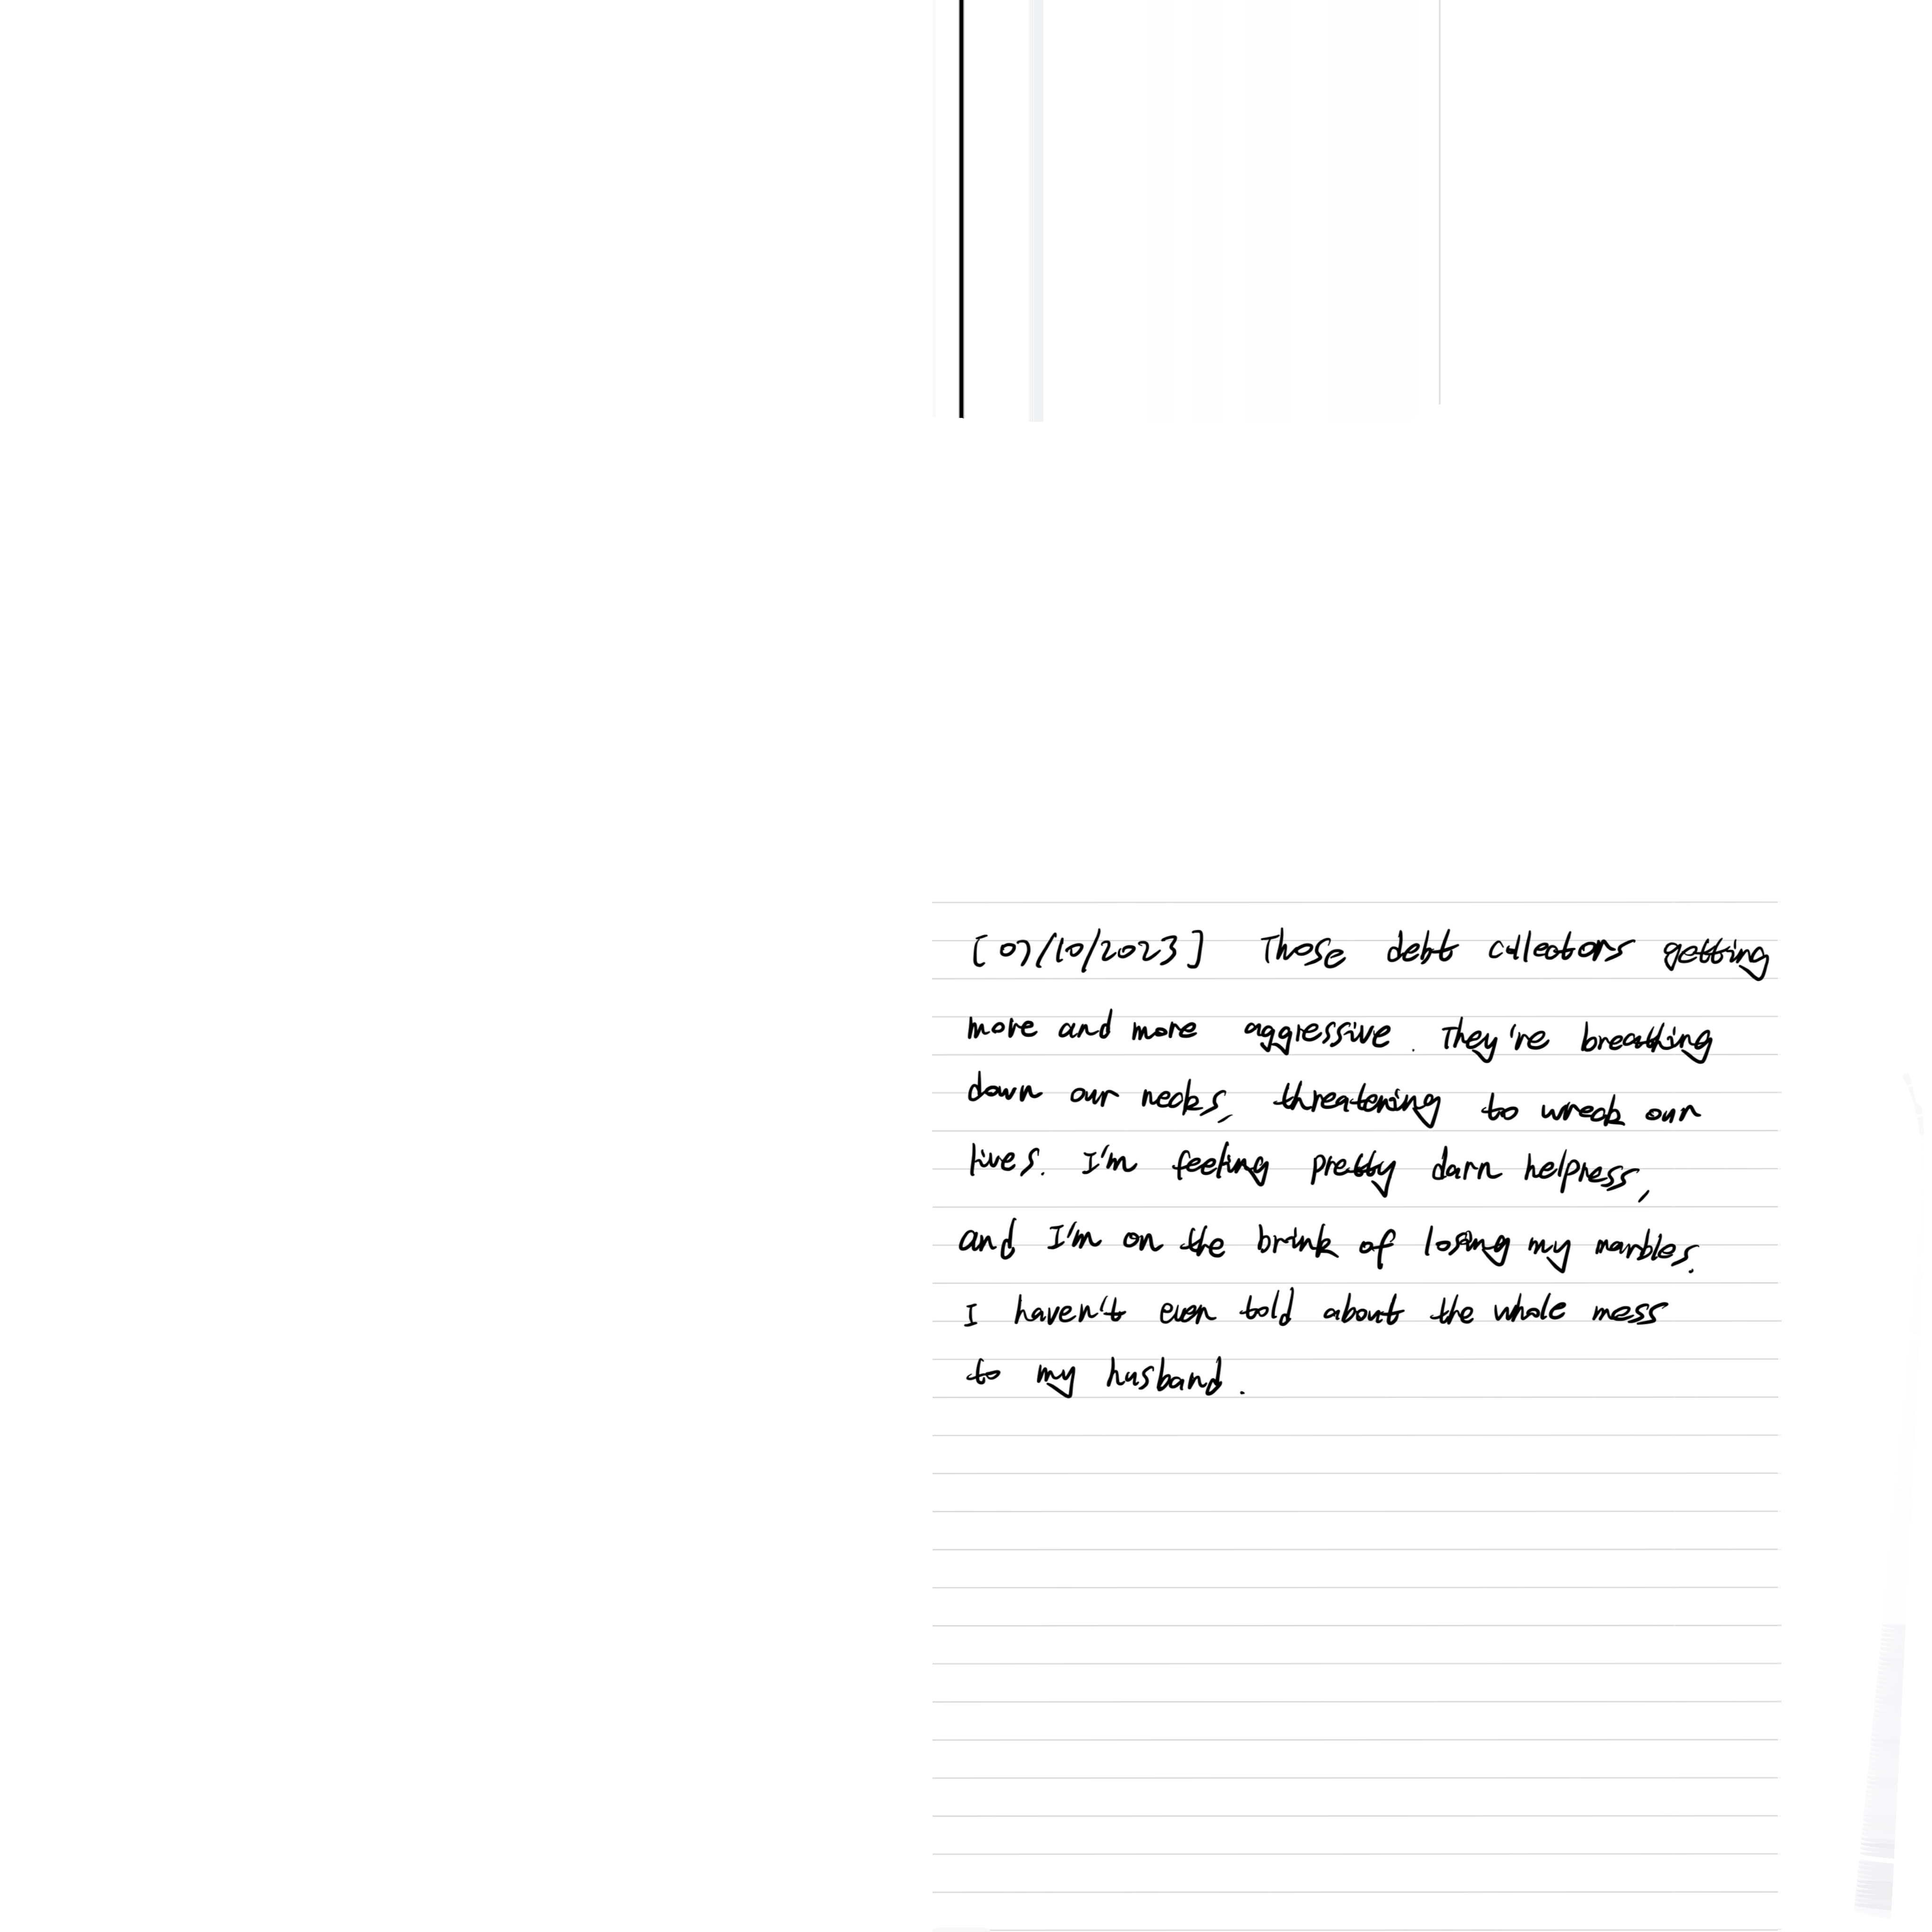 [07/10/2023] Those debt collectors getting
more and more aggressive. They're breathing
down our necks, threatening to wreck our
lives. I'm feeling pretty darn helpress,
and I'm on the brink of losing my marbles.
I haven't even told about the whole mess
to my husband.